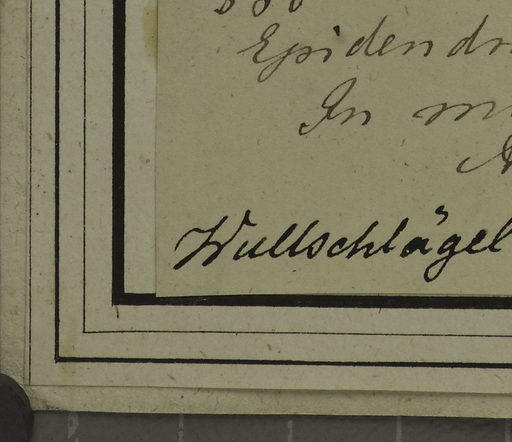 Epidendr
In m
Wullschlägel